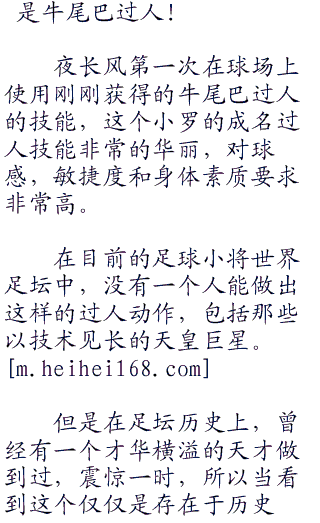 是牛尾巴过人!
夜长风第一次在球场上
使用刚刚获得的牛尾巴过人
的技能，这个小罗的成名过
人技能非常的华丽，对球
感，敏捷度和身体素质要求
非常高。
在目前的足球小将世界
足坛中，没有一个人能做出
这样的过人动作，包括那些
以技术见长的天皇巨星。
[m.heihei168.com]
但是在足坛历史上，曾
经有一个才华横溢的天才做
到过，震惊一时，所以当看
到这个仅仅是存在于历史